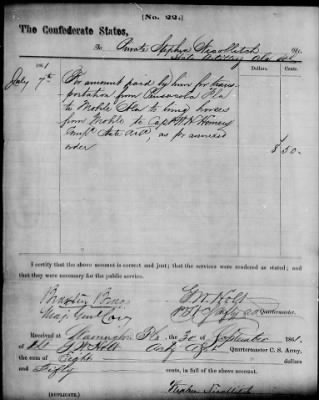 [No. 22.]
The Confederate States,
To Private Stephen
State Artillery Dr.
Dollars. Cents.
1861
July 7th For amount paid by him for trans-
portation from Pensacola Fla
to Mobile Ala to bring horses
from Mobile to Capt
Comp State Art, as per annexed
order $ 8 50
I certify that the above account is correct and just; that the services were rendered as stated; and
that they were necessary for the public service.
Braxton Bragg G. W. Holt
Maj. Genl Comg Quartermaster.
Received at Warrington Fla. the 30 of September 1861,
of G W Holt Quartermaster C. S. Army,
the sum of Eight dollars
and Fifty cents, in full of the above account.
Stephen
[DUPLICATE.]